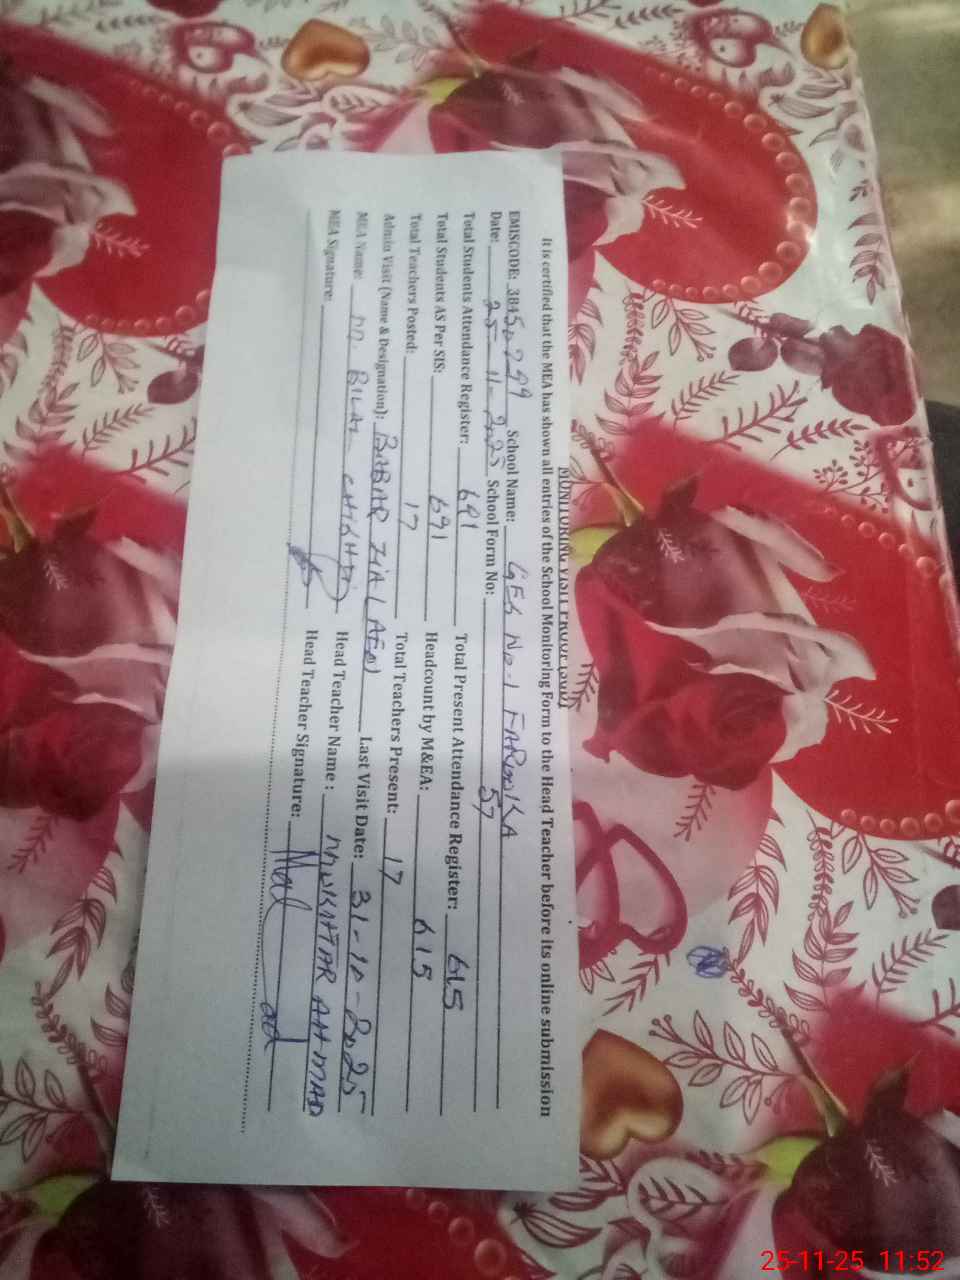 MONITORING VISIT PROOF
It is certified that the MEA has shown all entries of the School Monitoring Form to the Head Teacher before its online submission
EMISCODE: 38450299 School Name: GES No-1 FAROOKA
Date: 25-11-2025 School Form No: 57
Total Students Attendance Register: 691 Total Present Attendance Register: 615
Total Students AS Per SIS: 691 Headcount by M&EA: 615
Total Teachers Posted: 17 Total Teachers Present: 17
Admin Visit (Name & Designation): BABAR ZIA (AEO) Last Visit Date: 31-10-2025
MEA Name: M. BILAL CHISHTI Head Teacher Name : MUKHTAR AHMAD
MEA Signature: Head Teacher Signature:
25-11-25 11:52